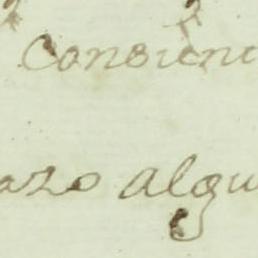 consien
azo algu